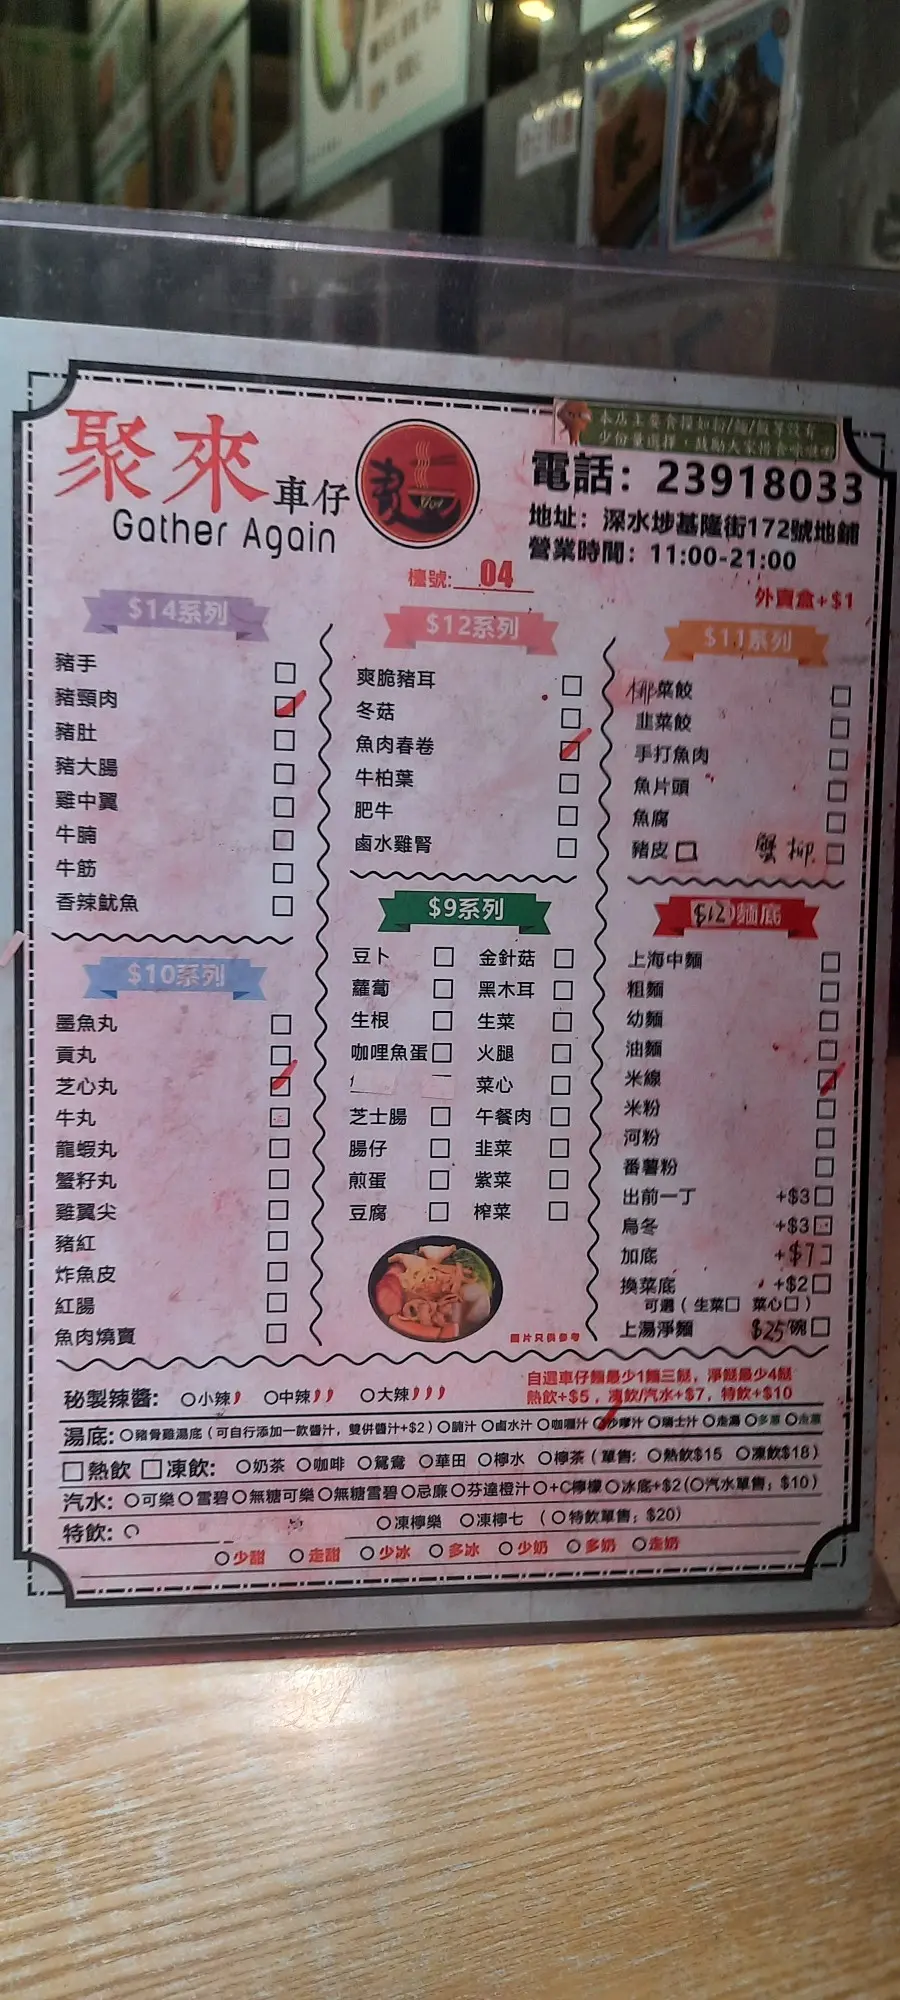 本店主要食糧如粉/麵/飯等設有
少份量選擇，鼓勵大家惜食
聚來車仔
Gather Again
電話：23918033
地址：深水埗基隆街172號地鋪
營業時間：11:00-21:00
檯號: 04
外賣盒+$1
$14系列
豬手
豬頸肉
豬肚
豬大腸
雞中翼
牛腩
牛筋
香辣魷魚
$10系列
墨魚丸
貢丸
芝心丸
牛丸
龍蝦丸
蟹籽丸
雞翼尖
豬紅
炸魚皮
紅腸
魚肉燒賣
$12系列
爽脆豬耳
冬菇
魚肉春卷
牛柏葉
肥牛
鹵水雞腎
$9系列
豆卜 金針菇
蘿蔔 黑木耳
生根 生菜
咖哩魚蛋 火腿
菜心
芝士腸 午餐肉
腸仔 韭菜
煎蛋 紫菜
豆腐 榨菜
圖片只供參考
$11系列
椰菜餃
韭菜餃
手打魚肉
魚片頭
魚腐
豬皮 蟹柳
$12麵底
上海中麵
粗麵
幼麵
油麵
米線
米粉
河粉
番薯粉
出前一丁 +$3
烏冬 +$3
加底 +$7
換菜底 +$2
可選（生菜 菜心）
上湯淨麵 $25碗
自選車仔麵最少1麵三餸，淨餸最少4餸
熱飲+$5，凍飲/汽水+$7，特飲+$10
秘製辣醬： 小辣 中辣 大辣
湯底: 豬骨雞湯底（可自行添加一款醬汁，雙併醬汁+$2）腩汁 鹵水汁 咖喱汁 沙嗲汁 瑞士汁 走湯 多蔥 走蔥
熱飲 凍飲: 奶茶 咖啡 鴛鴦 華田 檸水 檸茶（單售: 熱飲$15 凍飲$18）
汽水: 可樂 雪碧 無糖可樂 無糖雪碧 忌廉 芬達橙汁 +C檸檬 冰底+$2(汽水單售；$10)
特飲: 凍檸樂 凍檸七 （特飲單售；$20)
少甜 走甜 少冰 多冰 少奶 多奶 走奶